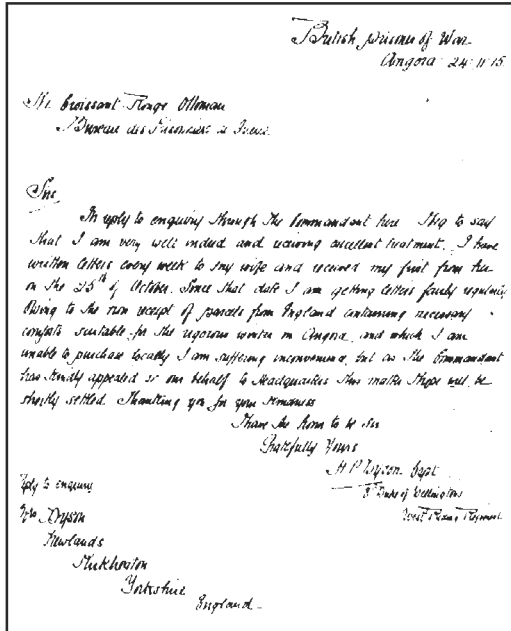 British Prisoner of War
Angora 24·11·15
Croissant Rouge Ottoman
Bureau des
Sirs
In reply to enquiry through the Commandant here I beg to say
that I am very well indeed and receiving excellent treatment. I have
written letters every week to my wife and received my first from her
on the 25th of October. Since that date I am getting letters fairly regularly
Owing to the non receipt of parcels from England containing necessary
comforts suitable for the rigorous winter in Angora, and which I am
unable to purchase locally I am suffering inconvenience, but as the Commandant
has kindly appealed on our behalf to Headquarters this matter I hope will be
shortly settled. Thanking you for your kindness
I have the honor to be Sir
Gratefully Yours
Capt
Duke of Wellingtons
West Riding Regiment
Reply to enquiry
Mrs Dyson
Newlands
Yorkshire
England